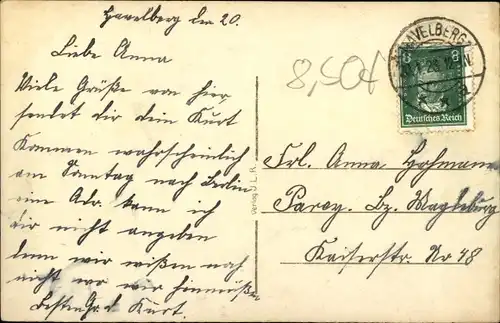 Havelberg den 20.
Liebe Anna
Viele Grüße von hier
sendet dir dein Kurt
Kommen wahrscheinlich
am Sonntag nach Berlin
eine Adr. kann ich
dir nicht angeben
denn wir wißen noch
nicht wo wir hinmüßen
Besten Gr. d. Kurt.
8,50
HAVELBERG
8 8
Deutsches Reich
Frl. Anna Hofmann
Parey. Bz. Magdeburg
Kaiserstr. No 48
Verlag J.L.R.